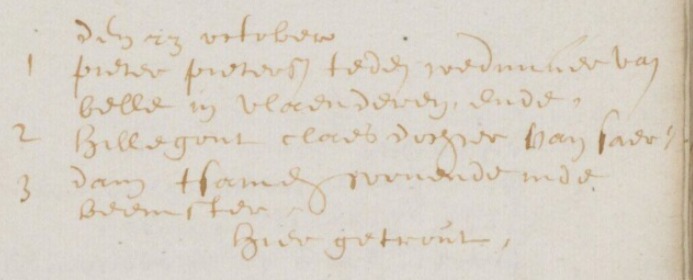 den 23 october
1 pieter pietersz teden wedunaer van
belle in vlaenderen, ende,
2 hillegont claes dochter van saer-
3 dam tsamen wonende inde
beemster.
hier getrout,